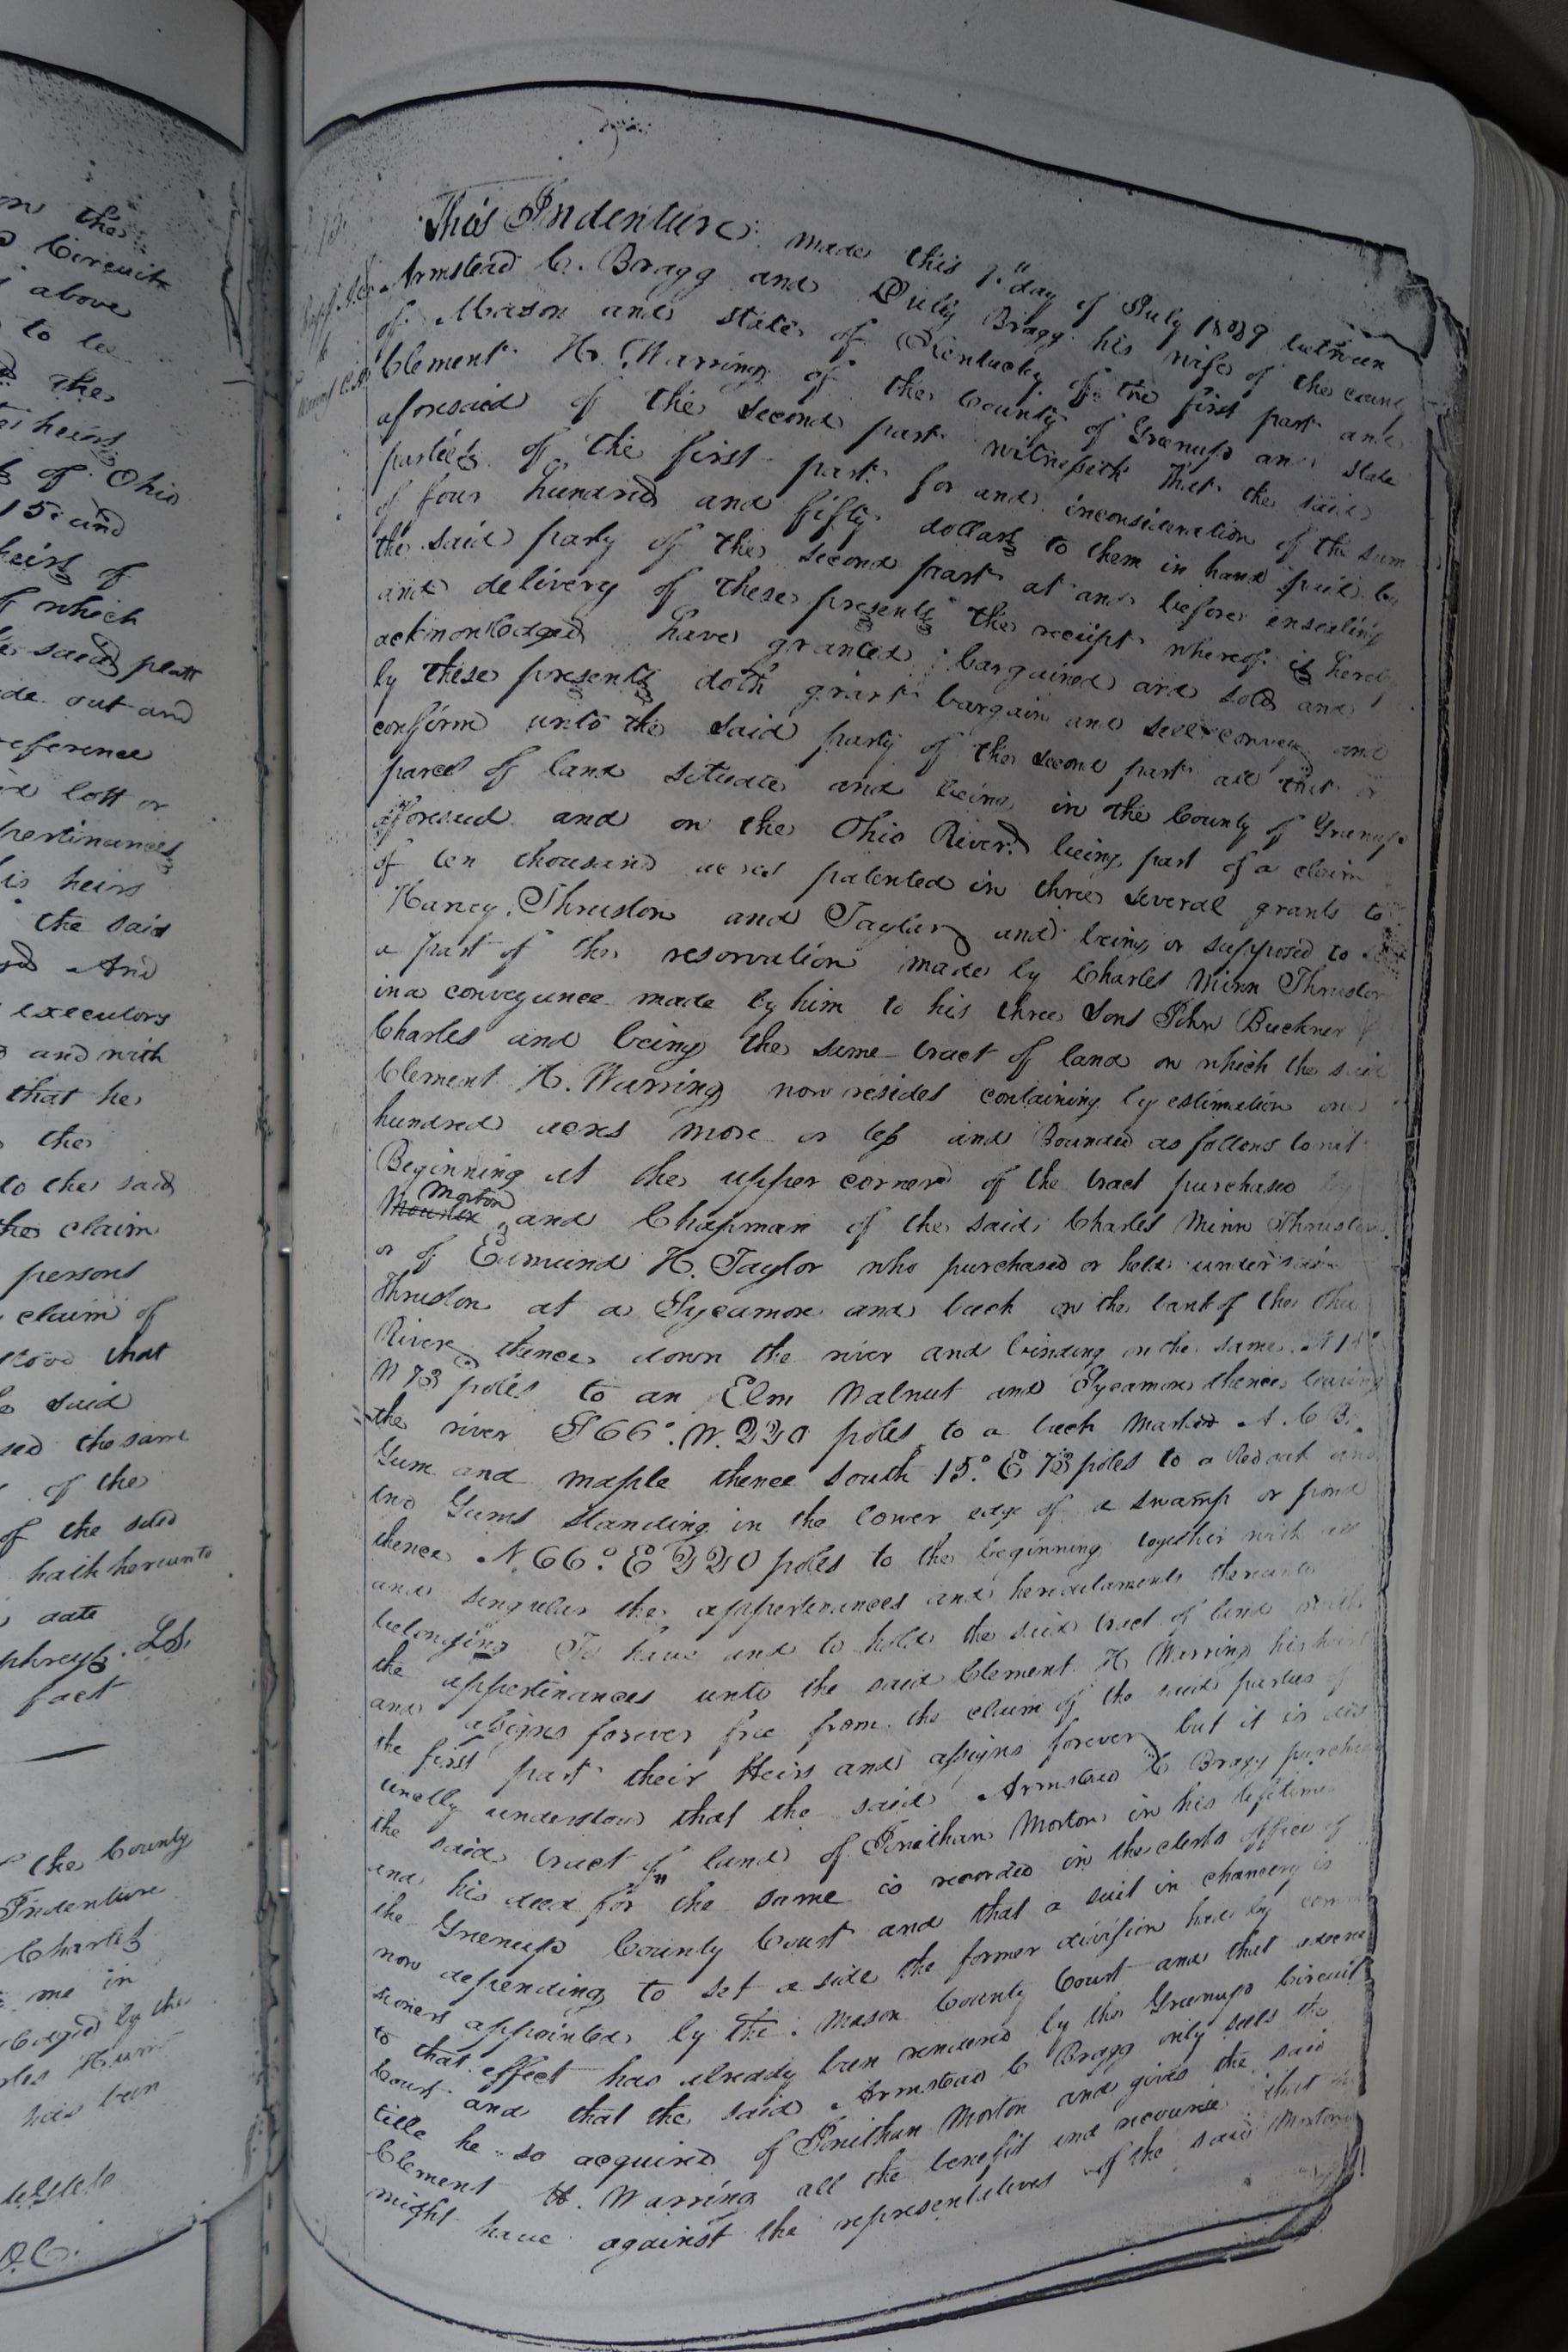 on the
Circuit
above
to be
the
heirs
of Ohio
15 and
heirs of
which
said platt
out and
reference
lott or
pertinances
his heirs
the said
And
executors
and with
that he
the
to the said
the claim
persons
claim of
that
said
the same
of the
of the said
hath hereunto
date
LS.
fact
the County
Indenture
Charles
me in
by the
has been
This Indenture made this day of July between
Armstead C. Bragg and Bragg his wife of the county
of Mason and state of Kentucky of the first part and
Clement H. Warring of the County of Greenup and State
aforesaid of the second part witnesseth that the said
parties of the first part for and inconsideration of the sum
of four hundred and fifty dollars to them in hand paid by
the said party of the second part at and before ensealing
and delivery of these presents the receipt whereof is hereby
acknowledged have granted bargained and sold and
by these presents doth grant bargain and sell convey and
confirm unto the said party of the second part all that
parcel of land situate and being in the County of Greenup
aforesaid and on the Ohio River being part of a claim
of ten thousand acres patented in three several grants to
Harvey, Thruston and Taylor and being or supposed to
a part of the reservation made by Charles Minn Thruston
in a conveyance made by him to his three Sons John Buckner
Charles and being the same tract of land on which the said
Clement H. Warring now resides containing by estimation one
hundred acres more or less and Bounded as follows to wit
Beginning at the upper corner of the tract purchased by
Morton
and Chapman of the said Charles Minn Thruston
or of Edmund H. Taylor who purchased or held under said
Thruston at a Sycamore and beech on the bank of the Ohio
River thence down the river and binding on the same N 15°
W 73 poles to an Elm Walnut and Sycamore thence leaving
the river S 66°. W. 220 poles to a beech Marked A. C B.
Gum and maple thence South 15.° E 73 poles to a Red oak and
two Gums standing in the lower edge of a swamp or pond
thence N. 66.° E 220 poles to the beginning together with all
and singular the appertenances and hereditaments thereunto
belonging To have and to hold the said tract of land with
the appertinances unto the said Clement H. Warring his heirs
and assigns forever free from the claim of the said parties of
the first part their Heirs and assigns forever but it is dis
tinctly understood that the said Armstead C Bragg purchased
the said tract of land of Jonathan Morton in his lifetime
and his deed for the same is recorded in the clerks office of
the Greenup County Court and that a suit in chancery is
now depending to set a side the former division had by commis
sioners appointed by the Mason County Court and that a decree
to that effect has already been rendered by the Greenup Circuit
Court and that the said Armstead C Bragg only sells the
title he so acquired of Jonathan Morton and gives the said
Clement H. Warring all the benefit and recourse that he
might have against the representatives of the said Morton